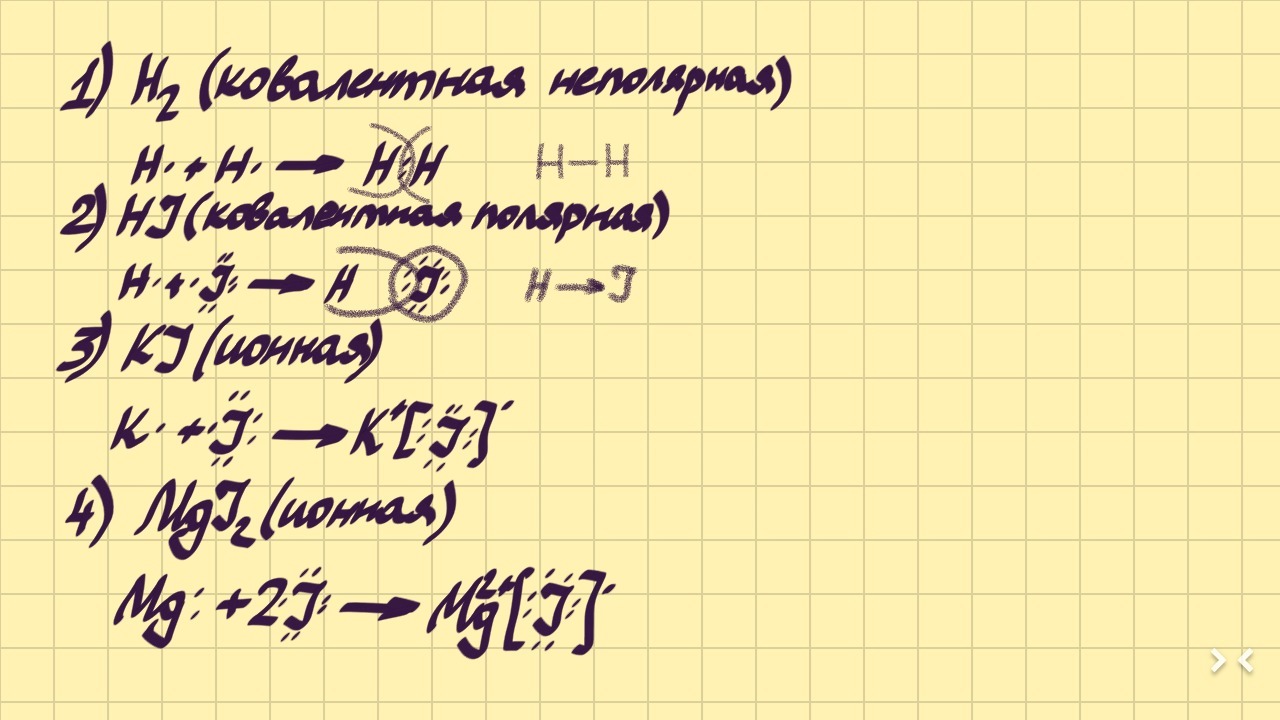 1) H₂ (ковалентная неполярная)
H· + H· → H:H H–H
2) HJ (ковалентная полярная)
H· + ·J̈: → H :J̈: H→J
3) KJ (ионная)
K· + ·J̈: → K⁺[:J̈:]⁻
4) MgJ₂ (ионная)
Mg: + 2·J̈: → Mg²⁺[:J̈:]⁻